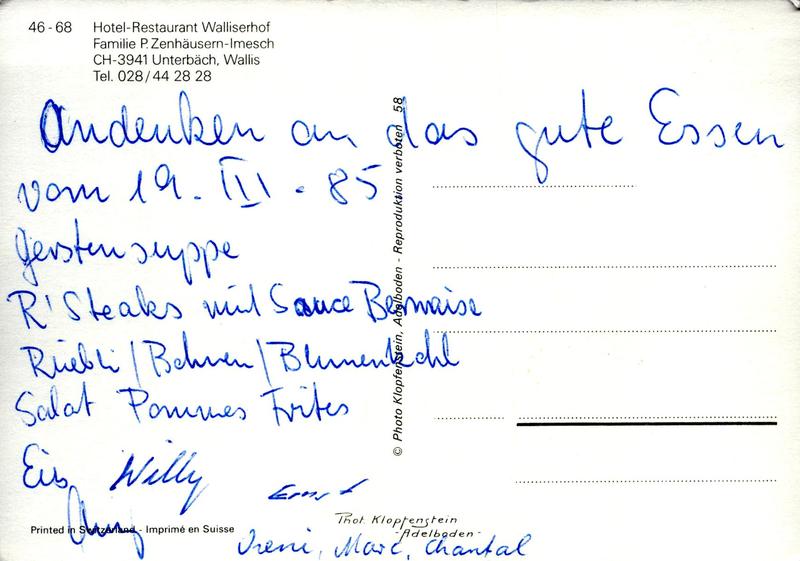 46 - 68 Hotel-Restaurant Walliserhof
Familie P. Zenhäusern-Imesch
CH-3941 Unterbäch, Wallis
Tel. 028/44 28 28
Andenken an das gute Essen
vom 19. III. 85
Gerstensuppe
R'Steaks mit Sauce Bernaise
Rüebli/Bohnen/Blumenkohl
Salat Pommes Frites
Eis Willy Ernst
Printed in Switzerland - Imprimé en Suisse
Phot. Klopfenstein
- Adelboden -
Ireni, Marc, Chantal
© Photo Klopfenstein, Adelboden - Reproduktion verboten 58